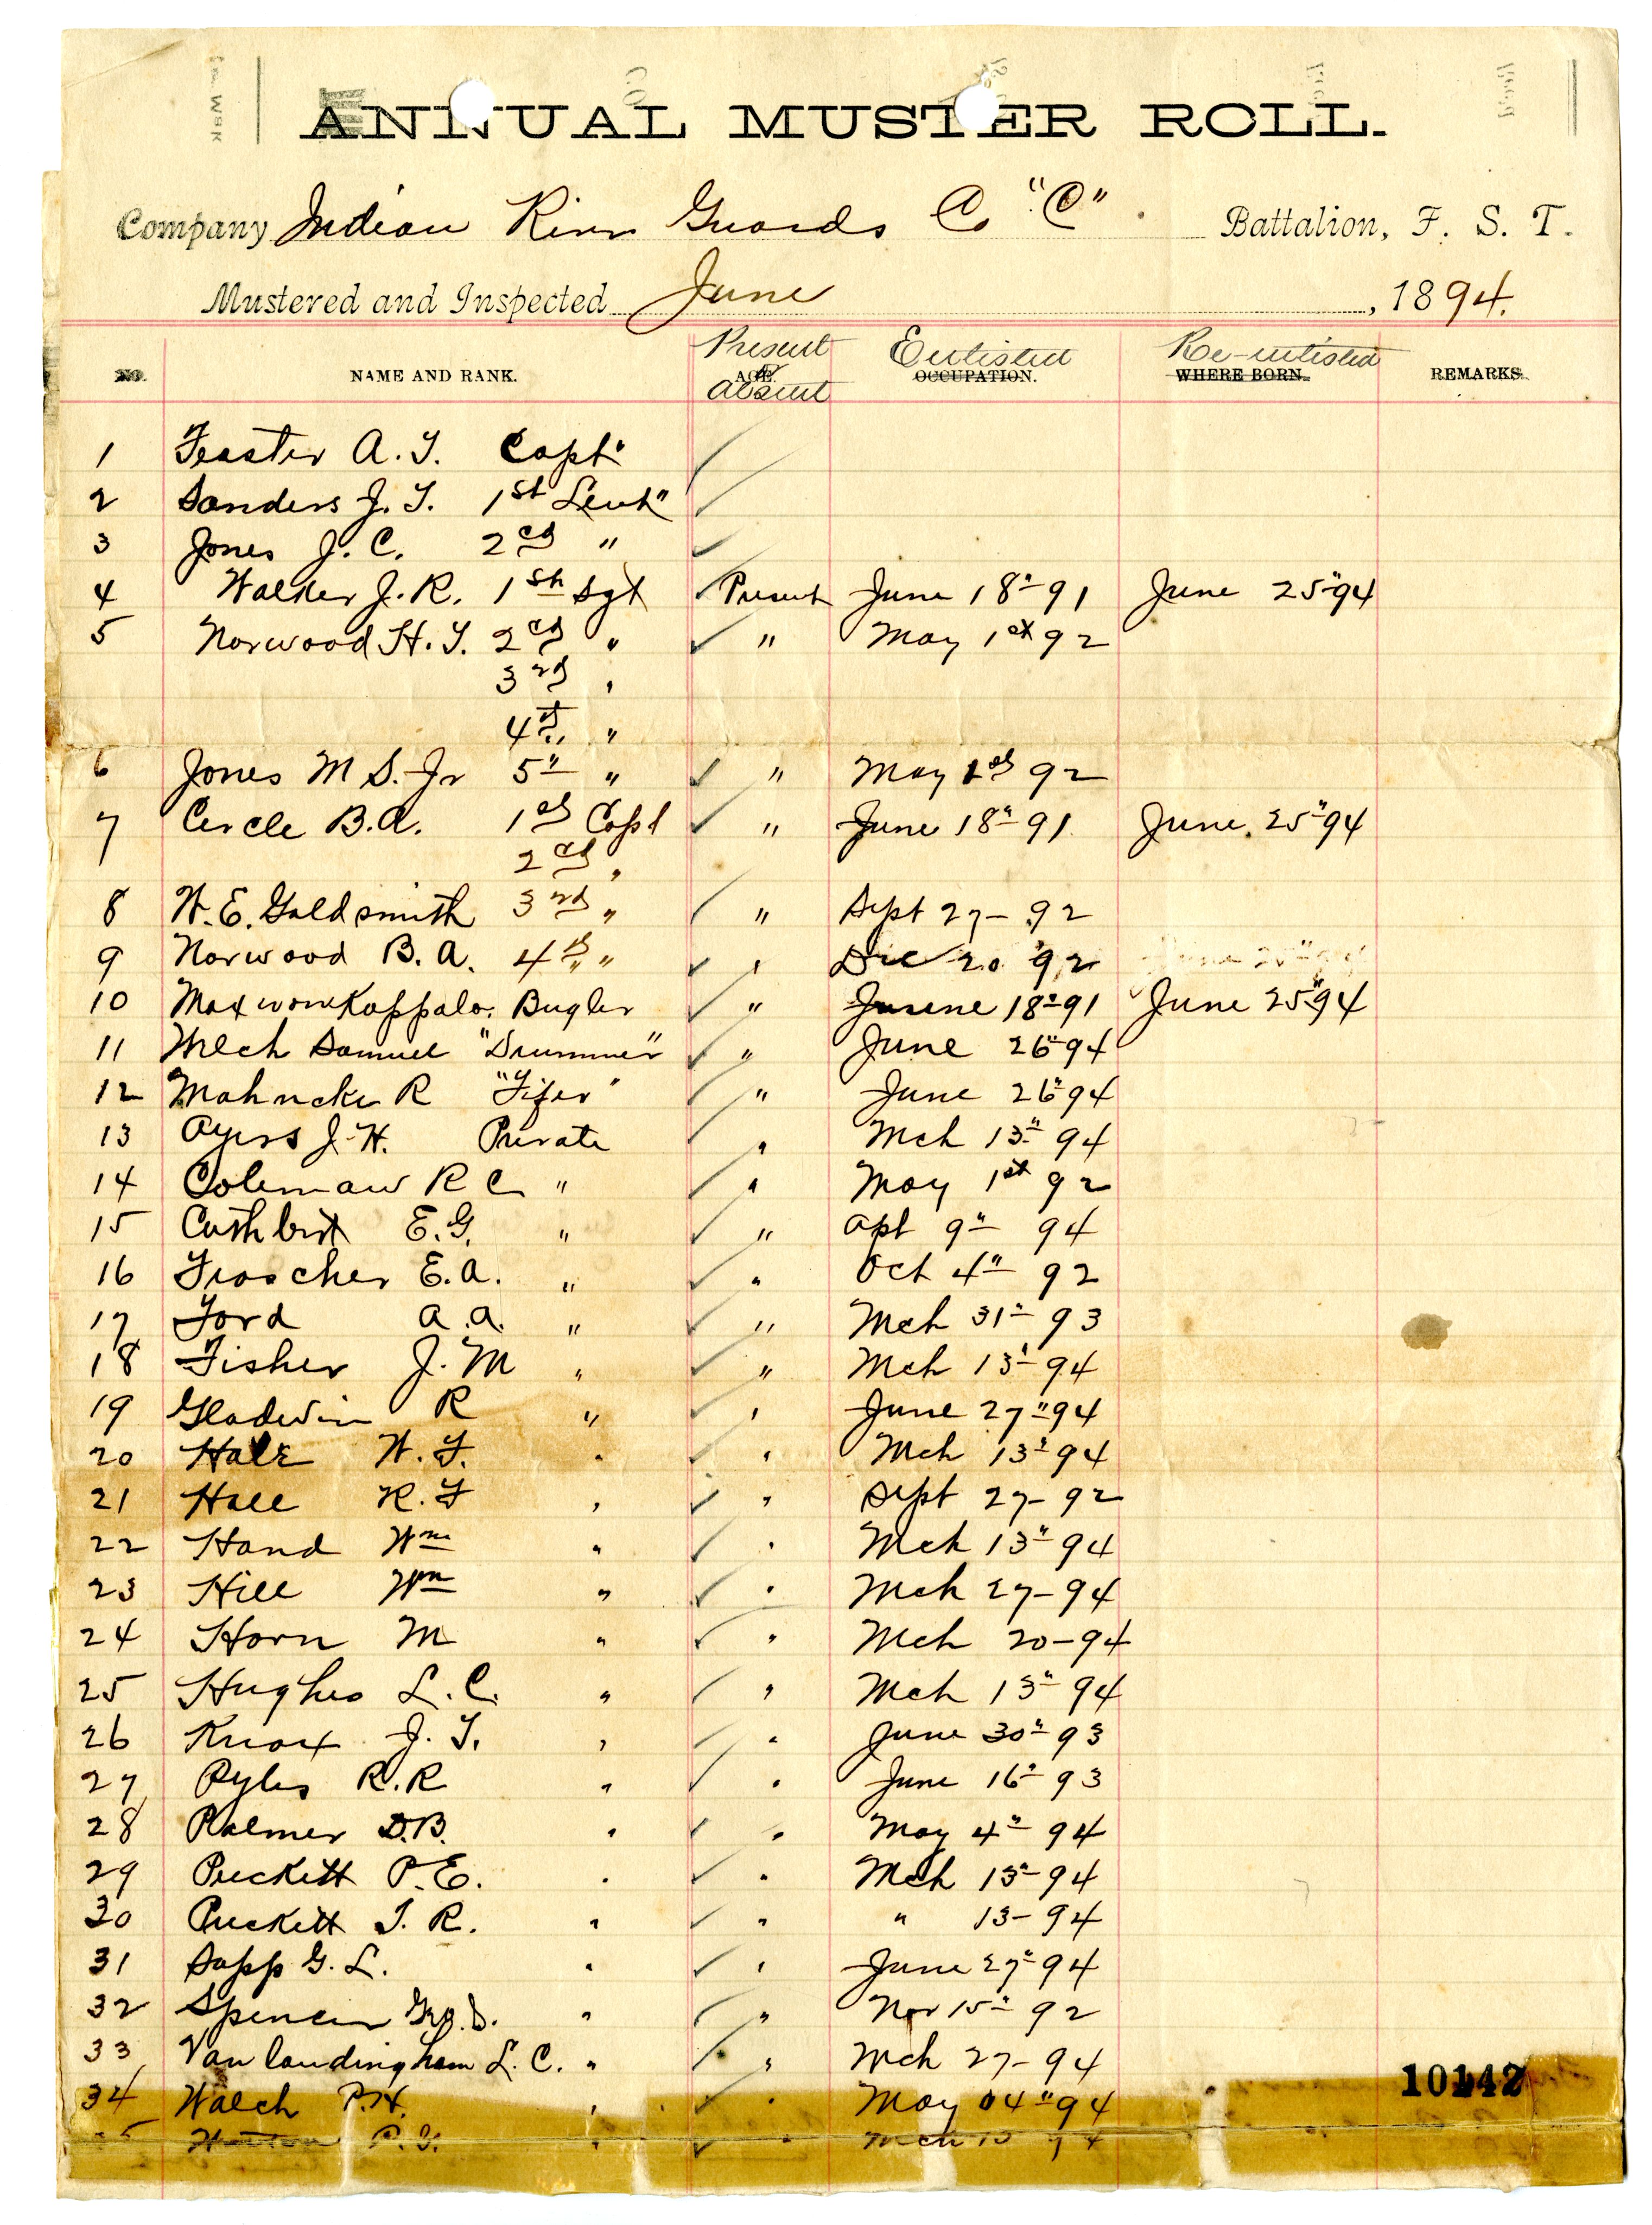 ANNUAL MUSTER ROLL.
Company Indian River Guards Co "C" Battalion, F. S. T.
Mustered and Inspected June, 1894.
NO. NAME AND RANK. AGE. Present & Absent OCCUPATION. Enlisted WHERE BORN. Re-enlisted REMARKS.
1 Feaster A. T. Capt"
2 Sanders J. T. 1st Leut"
3 Jones J. C. 2cd "
4 Walker J. R. 1st Sgt Present June 18"-91 June 25"-94
5 Norwood H. T. 2cd " " May 1st 92
3rd "
4th "
6 Jones M S. Jr 5" " " May 1st 92
7 Circle B. A. 1st Copl " June 18"-91 June. 25"-94
2cd "
8 W. E. Goldsmith 3rd " " Sept 27- 92
9 Norwood B. A. 4th " " Dec 20 92
10 Max von Koppalo. Bugler " June 18"-91 June 25"94
11 Welch Samuel "Drummer" " June 26"-94
12 Mahncke R "Fifer" " June 26"94
13 Ayers J. H. Private " Mch 13"- 94
14 Coleman R C " " May 1st 92
15 Cuthbert E. G. " " Apl 9"- 94
16 Froscher E. A. " " Oct 4"- 92
17 Ford A. A. " " Mch 31"- 93
18 Fisher J. M " " Mch 13"- 94
19 Gladwin R " " June 27"94
20 Hale W. F. " " Mch 13"- 94
21 Hall R. F " " Sept 27- 92
22 Hand Wm " " Mch 13"- 94
23 Hill Wm " " Mch 27- 94
24 Horn M " " Mch 20-94
25 Hughes L. C. " " Mch 13"- 94
26 Knox J. T. " " June 30"- 93
27 Pyles R. R " " June 16"- 93
28 Palmer D. B. " " May 4"- 94
29 Puckett P. E. " " Mch 13"- 94
30 Puckett T. R. " " " 13- 94
31 Sapp G. L. " " June 27"- 94
32 Spencer Geo. S. " " Nov 15"- 92
33 Van landingham L. C. " " Mch 27- 94
34 Walch P. H. " " May 04"-94
10142